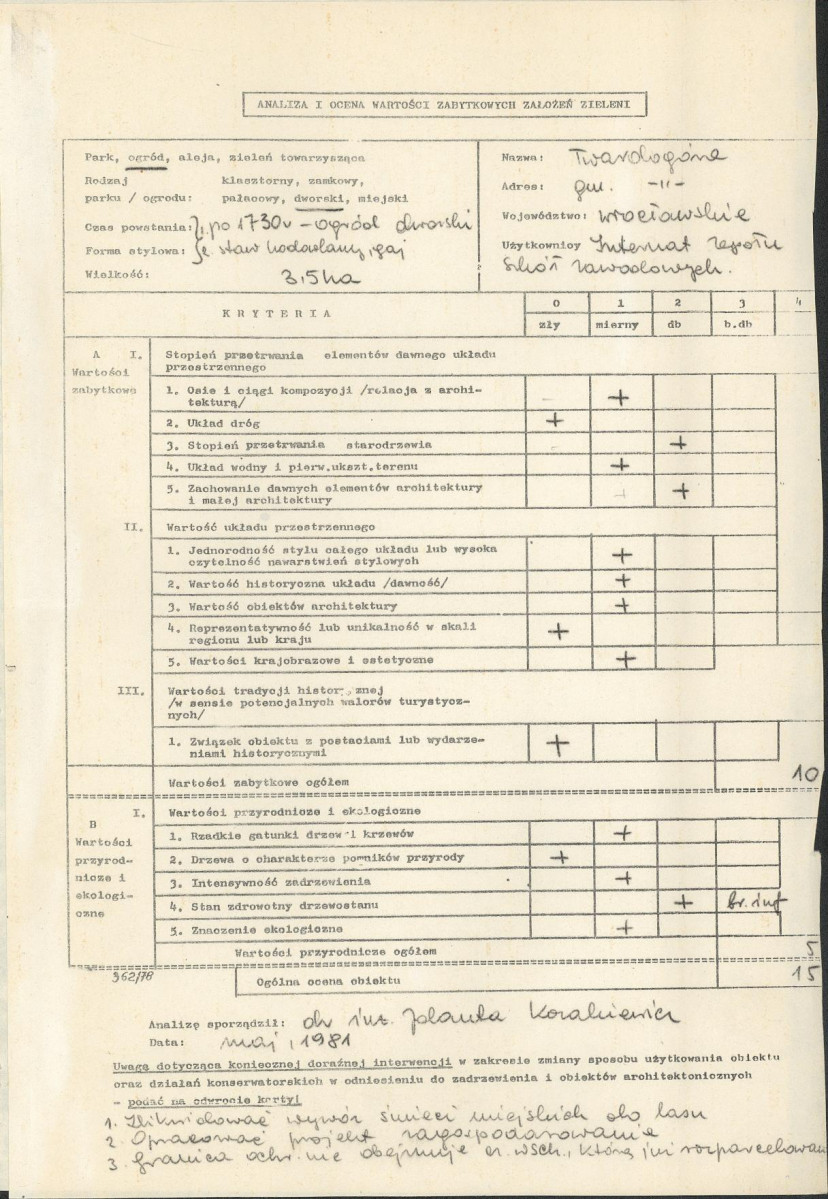 ANALIZA I OCENA WARTOŚCI ZABYTKOWYCH ZAŁOŻEŃ ZIELENI
Park, ogród, aleja, zieleń towarzysząca
Rodzaj klasztorny, zamkowy,
parku / ogrodu: pałacowy, dworski, miejski
Czas powstania: 1. po 1730 r – ogród dworski
Forma stylowa: 2. staw hodowlany, gaj
Wielkość: 3,5 ha
Nazwa: Twardogóra
Adres: gm. -"-
Województwo: wrocławskie
Użytkownicy Internat zespołu
szkół zawodowych.
KRYTERIA 0 1 2 3 4
zły mierny db b.db
A I. Stopień przetrwania elementów dawnego układu
Wartości przestrzennego
zabytkowe 1. Osie i ciągi kompozycji /relacja z archi-
tekturą/ +
2. Układ dróg +
3. Stopień przetrwania starodrzewia +
4. Układ wodny i pierw.ukszt.terenu +
5. Zachowanie dawnych elementów architektury
i małej architektury +
II. Wartość układu przestrzennego
1. Jednorodność stylu całego układu lub wysoka
czytelność nawarstwień stylowych +
2. Wartość historyczna układu /dawność/ +
3. Wartość obiektów architektury +
4. Reprezentatywność lub unikalność w skali
regionu lub kraju +
5. Wartości krajobrazowe i estetyczne +
III. Wartości tradycji historycznej
/w sensie potencjalnych walorów turystycz-
nych/
1. Związek obiektu z postaciami lub wydarze-
niami historycznymi +
Wartości zabytkowe ogółem 10
B I. Wartości przyrodnicze i ekologiczne
Wartości
przyrod-
nicze i
ekologi-
czne
1. Rzadkie gatunki drzew i krzewów +
2. Drzewa o charakterze pomników przyrody +
3. Intensywność zadrzewienia +
4. Stan zdrowotny drzewostanu + br. inf
5. Znaczenie ekologiczne +
Wartości przyrodnicze ogółem 5
962/78 Ogólna ocena obiektu 15
Analizę sporządził: dr inż. Jolanta
Data: maj, 1981
Uwagę dotycząca koniecznej doraźnej interwencji w zakresie zmiany sposobu użytkowania obiektu
oraz działań konserwatorskich w odniesieniu do zadrzewienia i obiektów architektonicznych
- podać na odwrocie karty!
1. Zlikwidować wywóz śmieci miejskich do lasu
2. Opracować projekt zagospodarowania
3. Granica ochr. nie obejmuje cz. wsch., którą już rozparcelowan